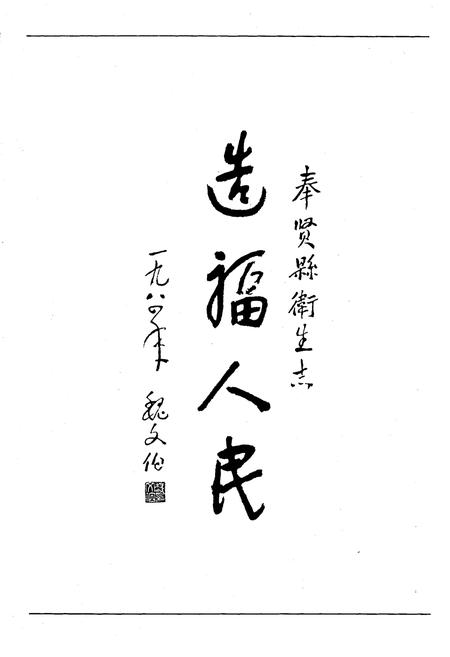 奉贤縣衛生志
造福人民
一九八四年 魏文伯